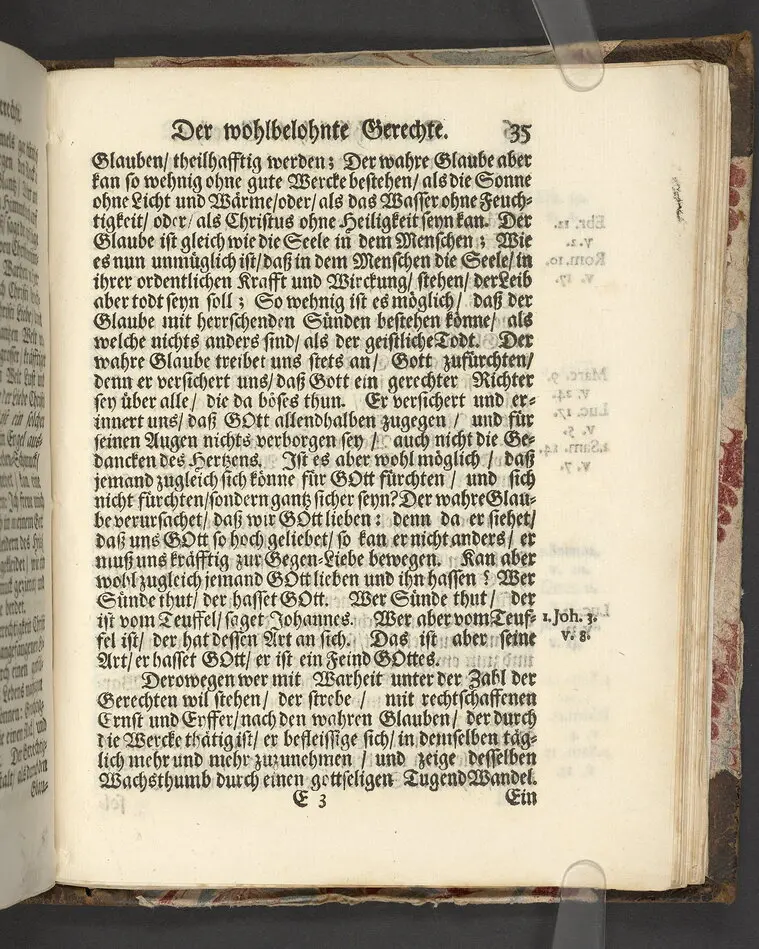 Der wohlbelohnte Gerechte. 35
Glauben/ theilhafftig werden; Der wahre Glaube aber
kan so wehnig ohne gute Wercke bestehen/ als die Sonne
ohne Licht und Wärme/oder/ als das Wasser ohne Feuch-
tigkeit/ oder/ als Christus ohne Heiligkeit seyn kan. Der
Glaube ist gleich wie die Seele in dem Menschen; Wie
es nun unmüglich ist/ daß in dem Menschen die Seele/ in
ihrer ordentlichen Krafft und Wirckung/ stehen/ der Leib
aber todt seyn soll; So wehnig ist es möglich/ daß der
Glaube mit herrschenden Sünden bestehen könne/ als
welche nichts anders sind/ als der geistliche Todt. Der
wahre Glaube treibet uns stets an/ Gott zufürchten/
denn er versichert uns/ daß Gott ein gerechter Richter
sey über alle/ die da böses thun. Er versichert und er-
innert uns/ daß GOtt allendhalben zugegen/ und für
seinen Augen nichts verborgen sey/ auch nicht die Ge-
dancken des Hertzens. Ist es aber wohl möglich/ daß
jemand zugleich sich könne für GOtt fürchten/ und sich
nicht fürchten/sondern gantz sicher seyn? Der wahre Glau-
be verursachet/ daß wir GOtt lieben: denn da er siehet/
daß uns GOtt so hoch geliebet/ so kan er nicht anders/ er
muß uns kräfftig zur Gegen-Liebe bewegen. Kan aber
wohl zugleich jemand GOtt lieben und ihn hassen? Wer
Sünde thut/ der hasset GOtt. Wer Sünde thut/ der
ist vom Teuffel/ saget Johannes. Wer aber vom Teuf-
fel ist/ der hat dessen Art an sich. Das ist aber seine
Art/ er hasset GOtt/ er ist ein Feind GOttes.
1. Joh. 3.
v. 8.
Derowegen wer mit Warheit unter der Zahl der
Gerechten wil stehen/ der strebe/ mit rechtschaffenen
Ernst und Eyffer/ nach den wahren Glauben/ der durch
die Wercke thätig ist/ er befleissige sich/ in demselben täg-
lich mehr und mehr zuzunehmen/ und zeige desselben
Wachsthumb durch einen gottseligen Tugend Wandel.
E 3 Ein